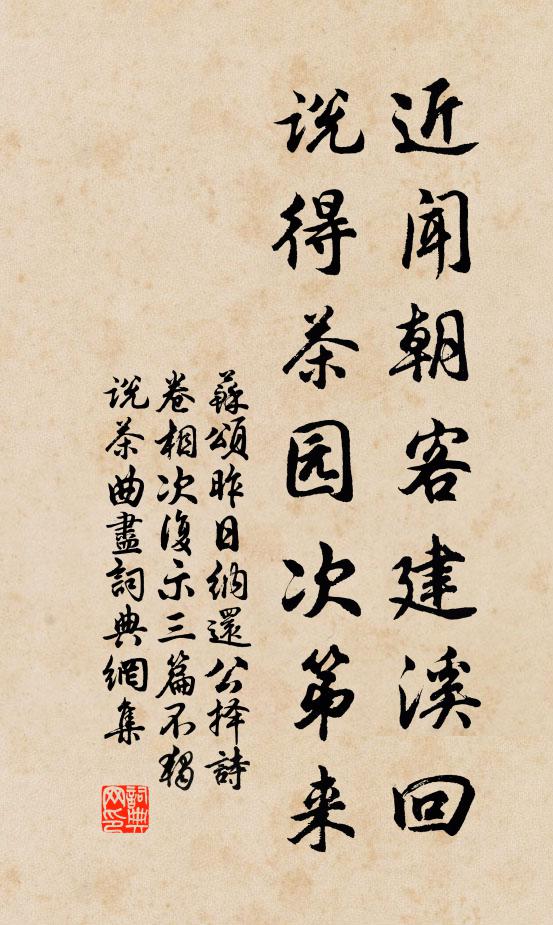 近闻朝客建溪回
说得茶园次第来
蘇頌昨日納還公择詩
卷相次復示三篇不獨
说茶曲盡詞典網集
詞典网印